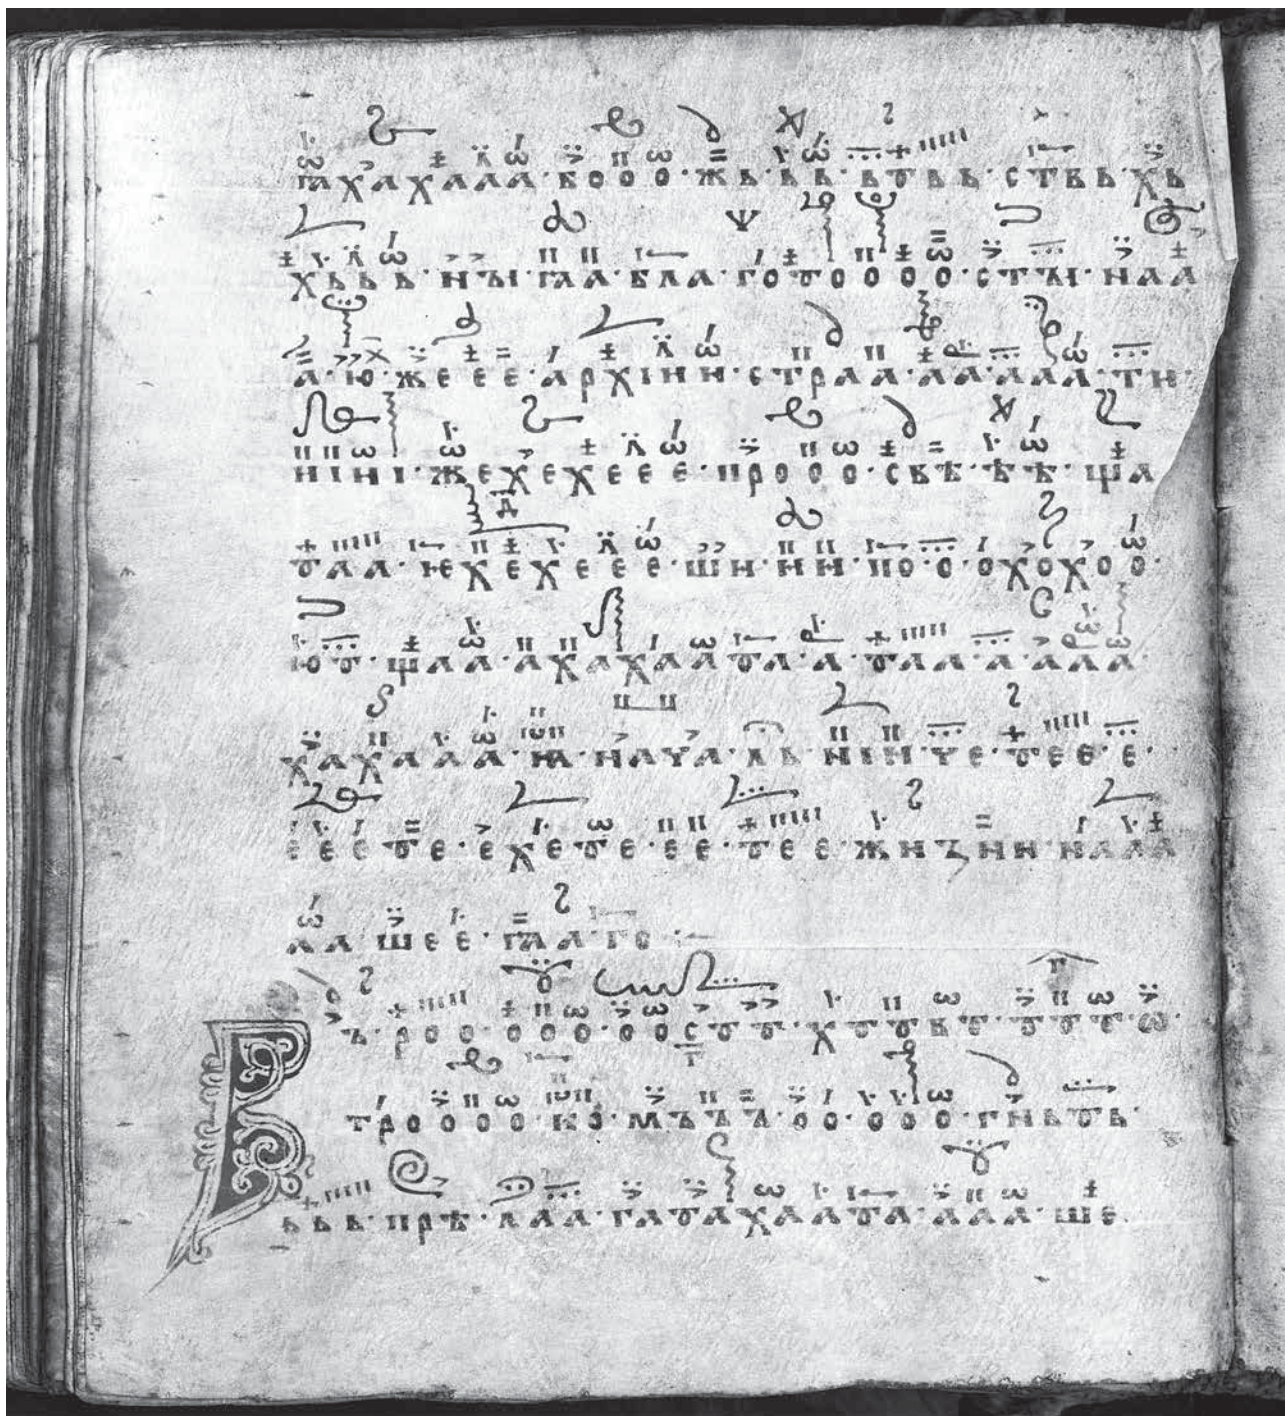 ꙗ҅хахалаа·бооо·жь·вь·ьтвь·ствьхъ
хъъъ·нꙑ·гла·вла·готоооо·стꙑ·наа
а·ю·жеее·архіни·страа·аа·ааа·ти·
нині·жехехеее·прооо·свѣ·ѣѣ·ща
таа·ѥхехеее·ши·ни·по·о·охохоо·
ют·щаа·ахахаата·а·таа·а·ааа·
хахааа·ꙗ·науа·ль·ніи·уе·тее·е·
еее·те·ехете·ее·тее·жизни·нааа
аа·шее·глаа·го
ъ·роо·ооо·оостт·
трооо·ко·мъъъ·оо·ооо·гньть·
ььь·прѣ·лаа·гатахаата·ааа·ше